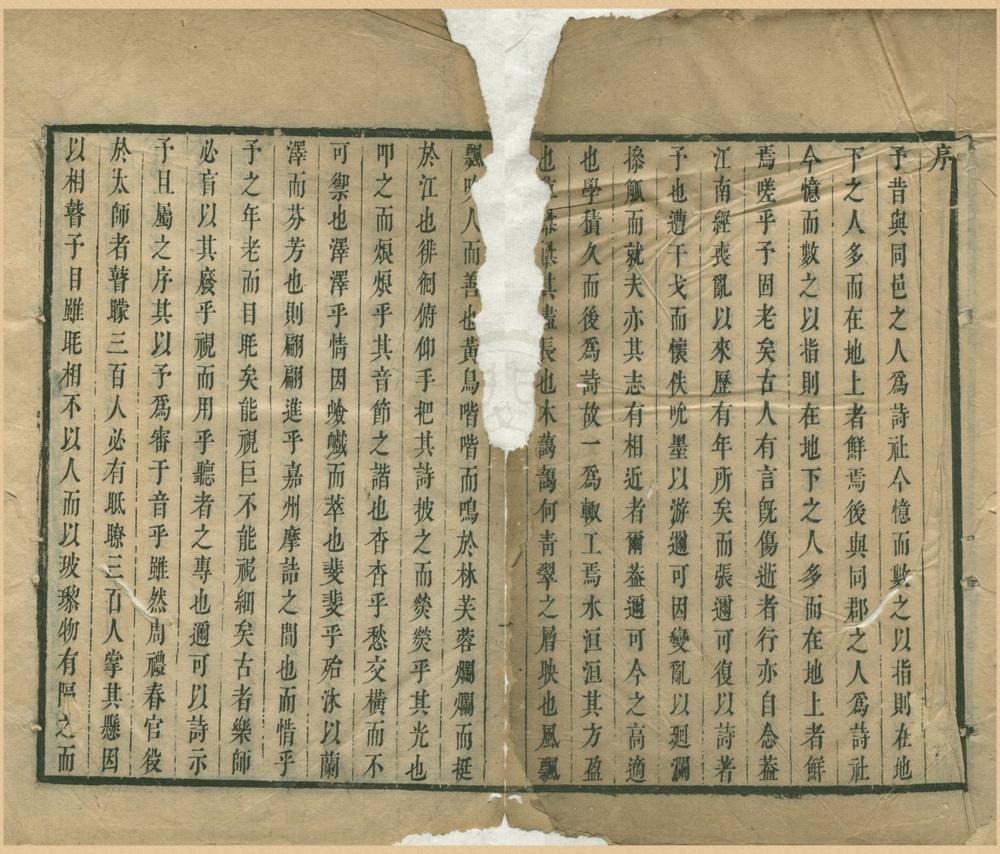 序
予昔與同邑之人爲詩社今憶而數之以指則在地
下之人多而在地上者鮮焉後與同郡之人爲詩社
今憶而數之以指則在地下之人多而在地上者鮮
焉嗟乎予固老矣古人有言旣傷逝者行亦自念葢
江南經喪亂以來歷有年所矣而張邇可復以詩著
予也遭干戈而懷佚吮墨以游邇可因變亂以廻瀾
摻觚而就夫亦其志有相近者爾葢邇可今之高適
也學積久而後爲詩故一爲輙工焉水洹洹其方盈
也其盡長也木藹藹何靑翠之層映也風飄
飄吹人而善也黃鳥喈喈而鳴於林芙蓉爛爛而挺
於江也徘徊俯仰手把其詩披之而熒熒乎其光也
叩之而煩煩乎其音節之諧也杳杳乎愁交橫而不
可禦也澤澤乎情因嶮巇而萃也斐斐乎殆沐以蘭
澤而芬芳也則翩翩進乎嘉州摩詰之間也而惜乎
予之年老而目眊矣能視巨不能視細矣古者樂師
必盲以其廢乎視而用乎聽者之專也邇可以詩示
予且屬之序其以予爲審于音乎雖然周禮春官役
於太師者瞽矇三百人必有眡瞭三百人掌其懸因
以相瞽予目雖眊相不以人而以玻瓈物有隔之而